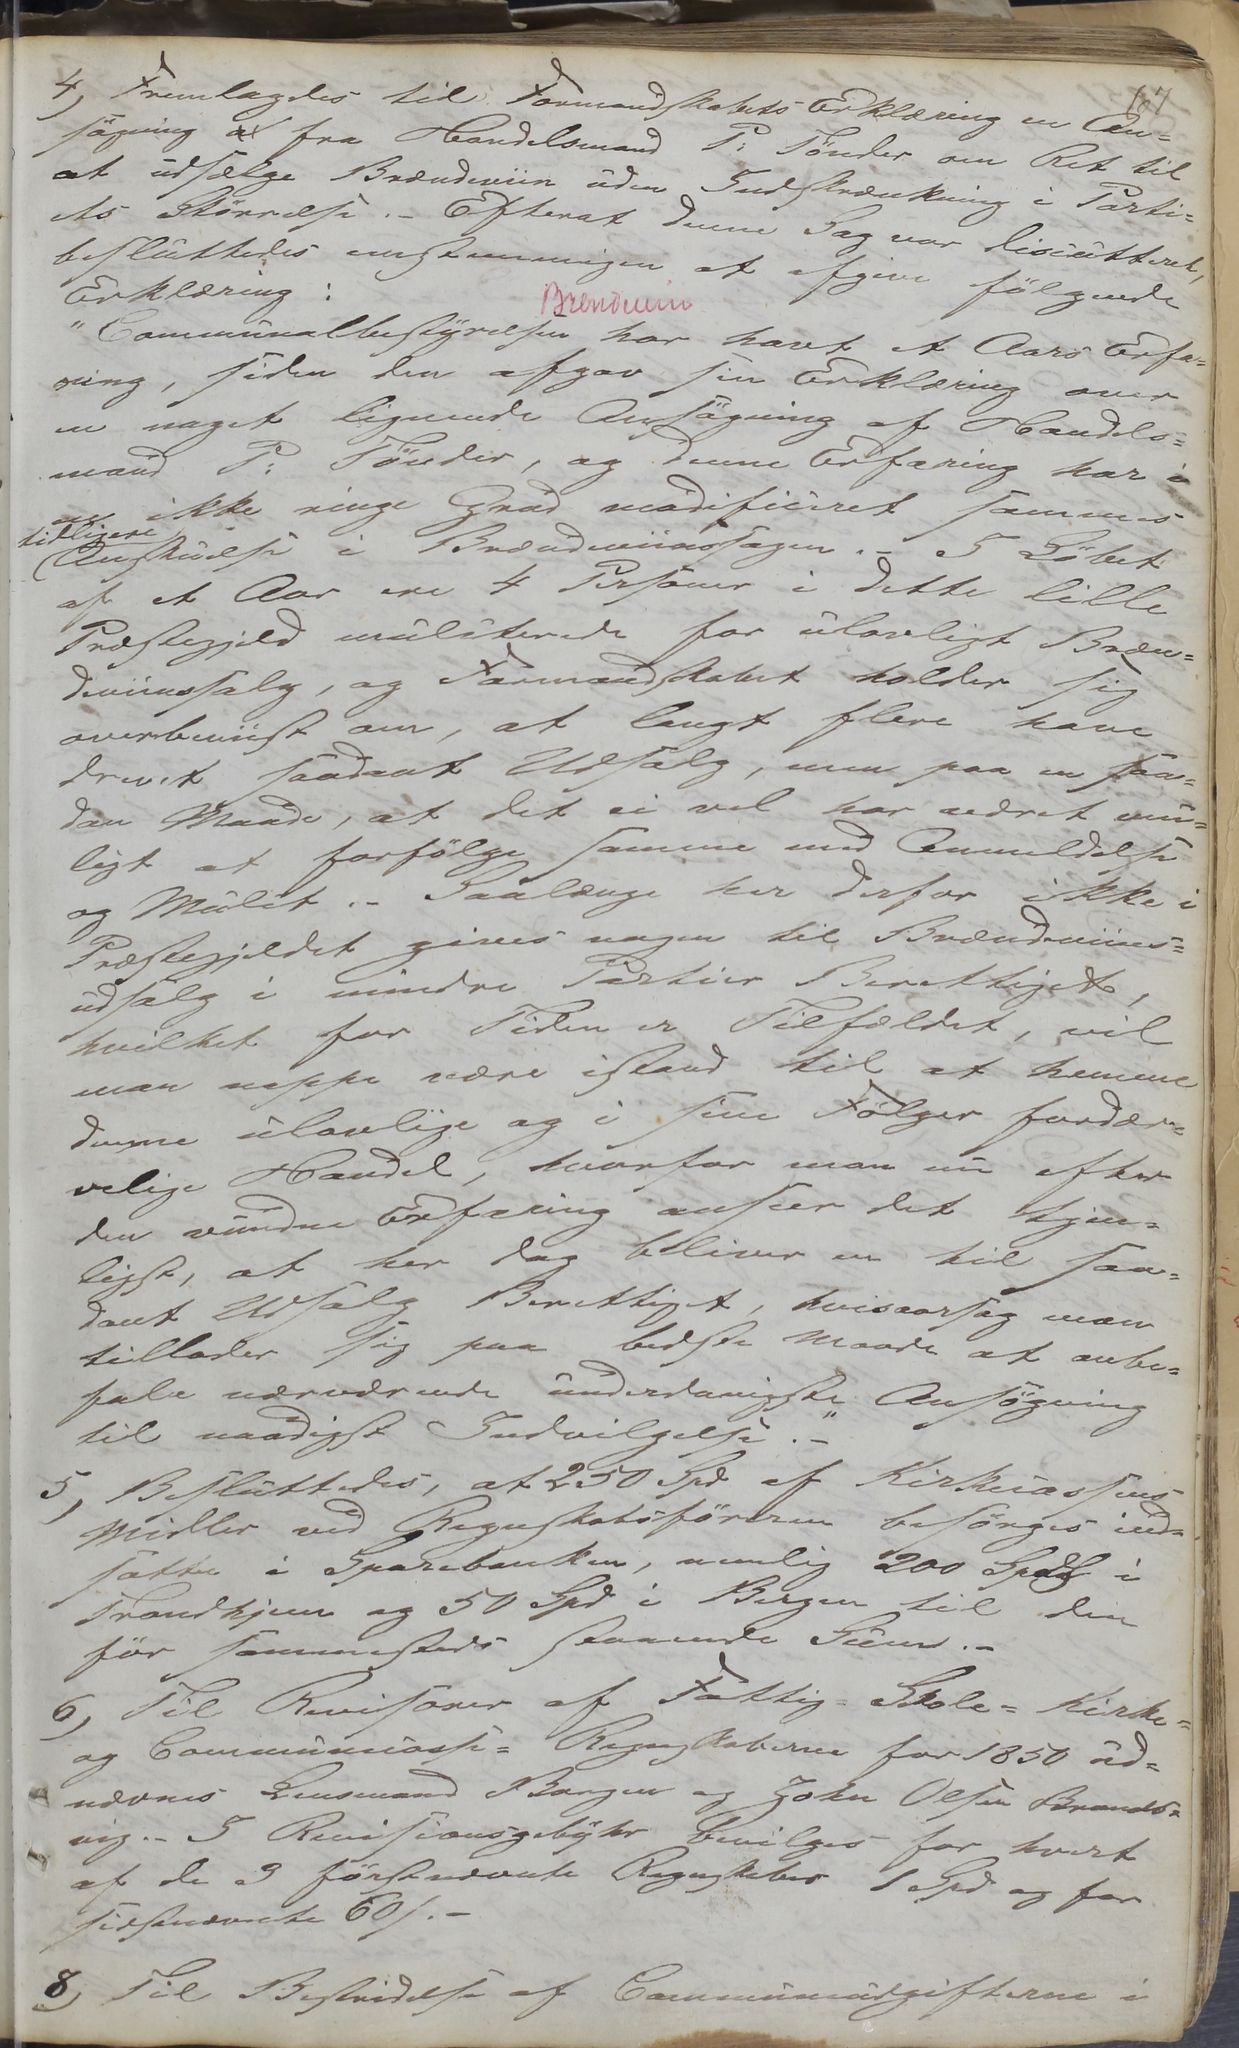 167
4, Fremlagdes til Formandskabets Erklæring en An-
søgning fra Handelsmand P: Tönder om Ret til
at udsælge Brændeviin uden Indskrænkning i Parti-
ets Störrelse. - Efterat denne Sag var discutteret,
besluttedes eenstemmigen at afgive fölgende
Erklæring:
Brendeviin
"Communalbestyrelsen har havt et Aars Erfa-
ring, siden den afgav sin Erklæring over
en noget lignende Ansögning af Handels-
mand P: Tönder, og denne Erfaring har i
ikke ringe Grad modificeret sammes
tidligere
Anskuelse i Brændeviinssagen. - I Löbet
af et Aar ere 4 Personer i dette lille
Præstegjeld mulcterede for ulovligt Bræn-
deviinssalg, og Formandskabet holder sig
overbeviist om, at langt flere have
drevet saadant Udsalg, men paa en saa-
dan Maade, at det ei vel har været mu-
ligt at forfölge samme med Anmeldelse
og Mulct. - Saalænge her derfor ikke i
Præstegjeldet gives nogen til Brændeviins-
udsalg i mindre Partier Berettiget,
hvilket for Tiden er Tilfældet, vil
man neppe være istand til at hemme
denne ulovlige og i sine Fölger fordær-
velige Handel, hvorfor man nu efter
den vundne Erfaring anseer det tjen-
ligst, at her dog bliver en til saa-
dant Udsalg Berettiget, hvisaarsag man
tillader sig paa bedste Maade at anbe-
fale nærværende underdanigste Ansögning
til naadigst Indvilgelse. -"
5, Besluttedes, at 250 Spd af Kirkecassens
Midler ved Regnskabsföreren besörges ind-
satte i Sparebanken, nemlig 200 Spd i
Trondhjem og 50 Spd i Bergen til den
för sammesteds staaende Sum. -
6, Til Revisorer af Fattig- Skole- Kirke-
og Communecasse- Regnskaberne for 1850 ud-
nævnes Lensmand Borgen og John Olsen Brands-
vig. - I Revisionsgebyhr bevilges for hvert
af de 3 förstnævnte Regnskaber 1 Spd og for
sidstnævnte 60 s. -
8, Til Bestridelse af Communeudgifterne i